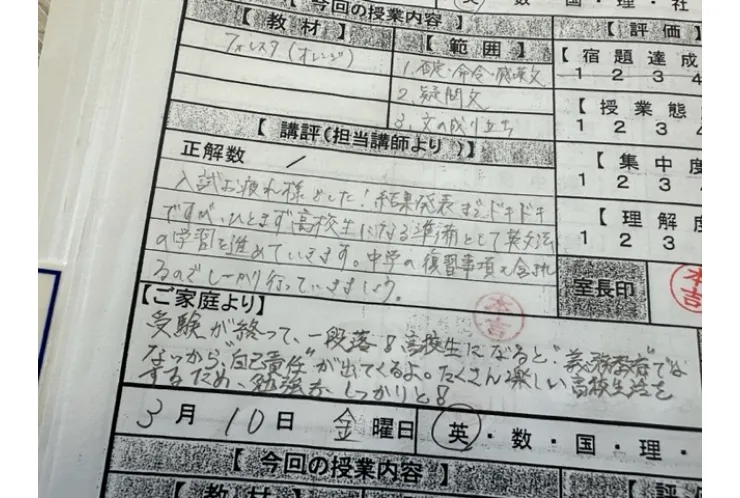 英・数・国・理・社
【今回の授業内容】
【教材】
フォレスタ(オレンジ)
【範囲】
1. 否定・命令・感嘆文
2. 疑問文
3. 文の成り立ち
【評価】
【宿題達成
1 2 3 4
【授業態
1 2 3 4
【集中度
1 2 3
【理解度
1 2 3
室長印
本吉
【講評(担当講師より)】
正解数 /
入試お疲れ様でした!結果発表までドキドキ
ですが、ひとまず高校生になる準備として英文法
の学習を進めていきます。中学の復習事項も含まれ
るのでしっかり行っていきましょう。
本吉
【ご家庭より】
受験が終って、一段落!高校生になると"義務教育"でな
なっから、"自己責任"が出てくるよ。たくさん楽しい高校生活を
するため、勉強もしっかりと!
3月10日 金曜日
英・数・国・理・
【今回の授業内容】
【教材】
【範囲】
【評